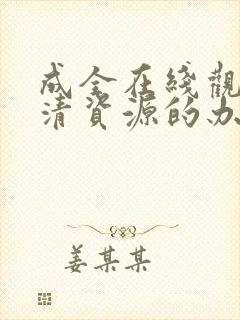 成全在綫觀
清資源的办
姜某某